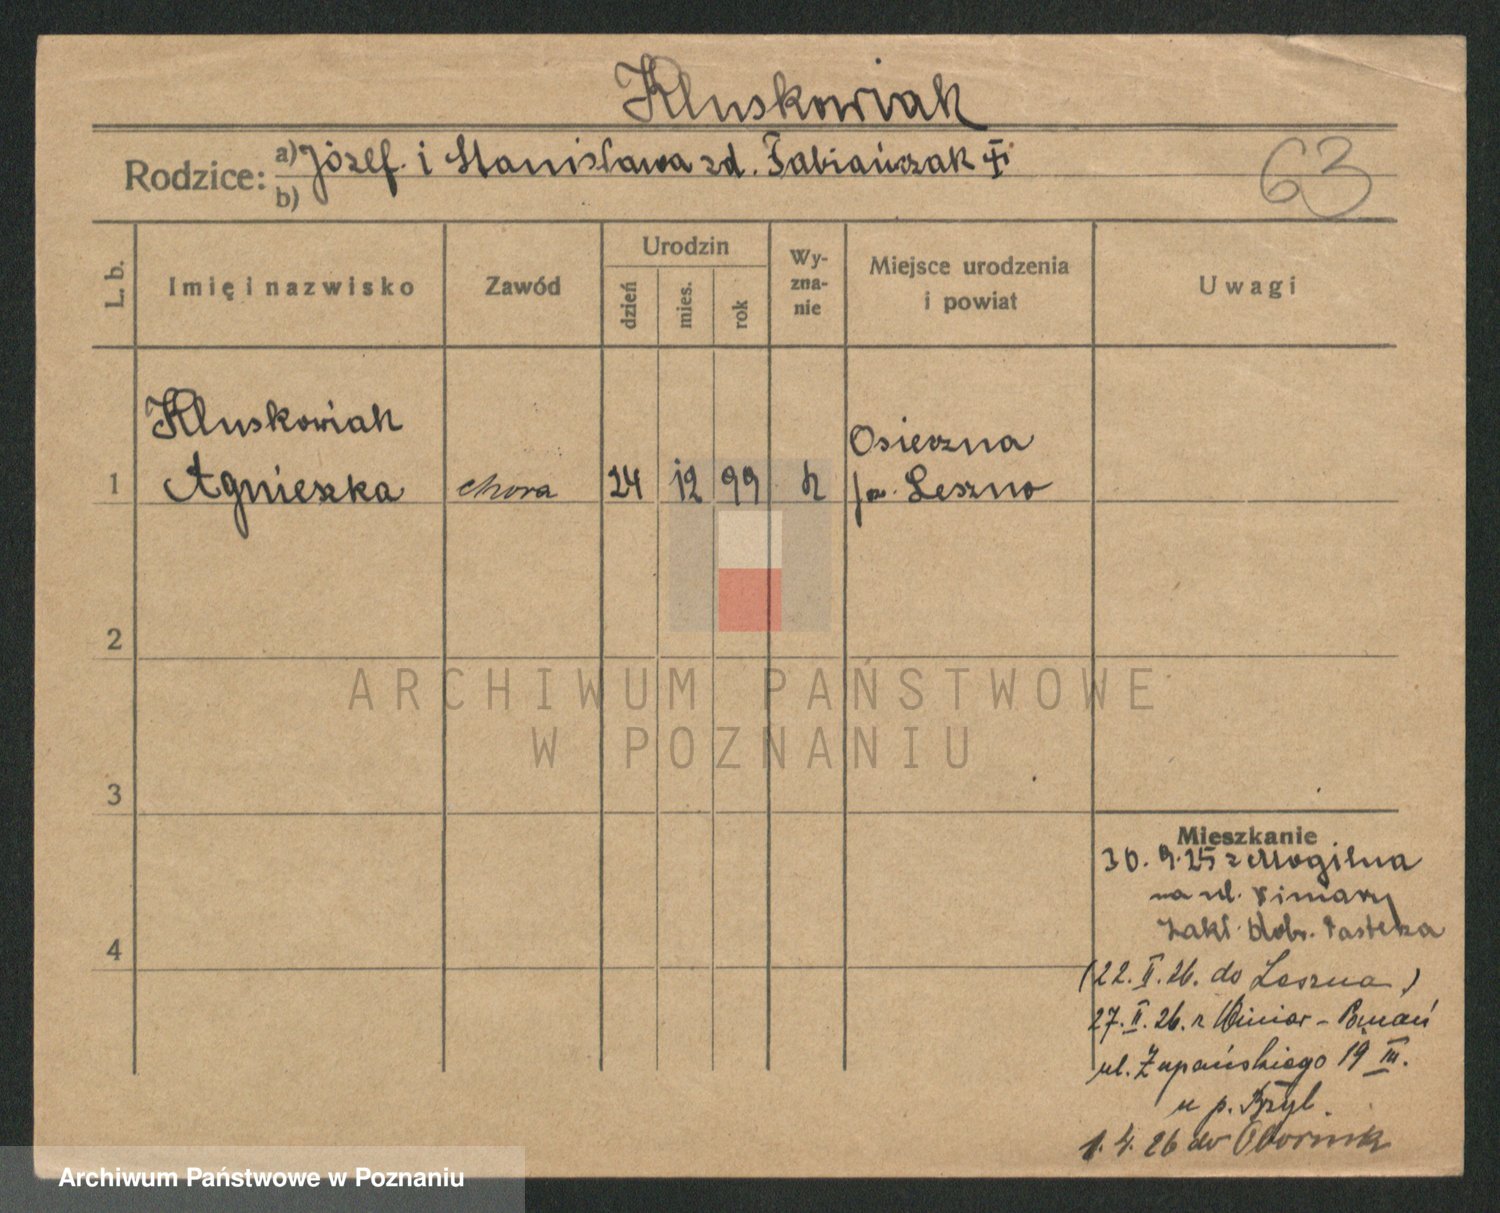 Kluskowiak
Rodzice: a) Józef i Stanisława zd. Fabiańczak
b)
63
L. b.
Imię i nazwisko
Zawód
Urodzin
dzień
mies.
rok
Wy-
zna-
nie
Miejsce urodzenia
i powiat
Uwagi
Kluskowiak
1 Agnieszka chora 24 12 99
Osieczna
Leszno
2
3
4
ARCHIWUM PAŃSTWOWE
W POZNANIU
Mieszkanie
30. 9. 25 z Mogilna
na ul. Winiary
Zakł.
(22. II. 26. do Leszna)
27. II. 26. z Winiar -
ul. Żupańskiego 19 III.
u p. Bzyl.
1. 4. 26 do Obornik
Archiwum Państwowe w Poznaniu